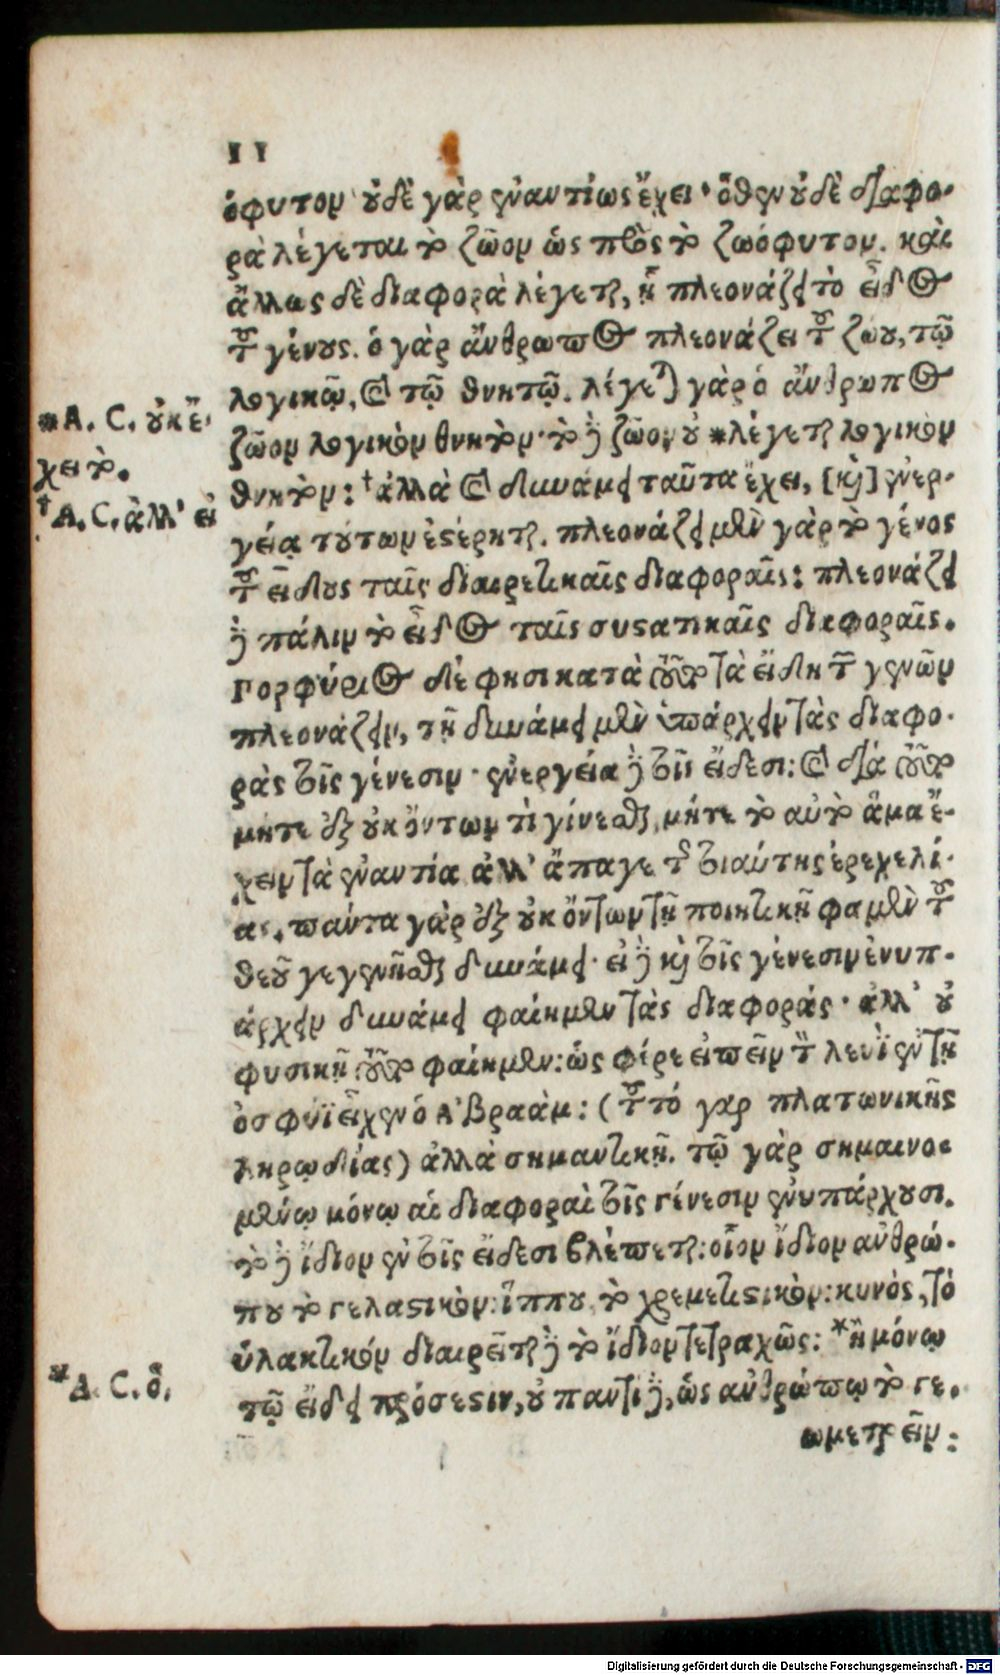 11
όφυτον οὐδὲ γὰρ ἐναντίως ἔχει· ὅθεν οὐδὲ διαφο-
ρὰ λέγεται τὸ ζῶον ὡς πρὸς τὸ ζωόφυτον. καὶ
ἄλλως δὲ διαφορὰ λέγεται, ᾗ πλεονάζει τὸ εἶδος
τοῦ γένους. ὁ γὰρ ἄνθρωπος πλεονάζει τοῦ ζώου, τῷ
λογικῷ, καὶ τῷ θνητῷ. λέγεται γὰρ ὁ ἄνθρωπος
*A. C. οὐκ ἔ-
ζῶον λογικὸν θνητὸν· τὸ δὲ ζῶον οὐ *λέγεται λογικὸν
χει τὸ.
θνητὸν: †ἀλλὰ καὶ δυνάμει ταῦτα ἔχει, [καὶ] ἐνερ-
†A. C. ἀλλ' εἰ
γείᾳ τούτων ἐστέρηται. πλεονάζει μὲν γὰρ τὸ γένος
τοῦ εἴδους ταῖς διαιρετικαῖς διαφοραῖς: πλεονάζει
δὲ πάλιν τὸ εἶδος ταῖς συστατικαῖς διαφοραῖς.
Πορφύριος δέ φησι κατὰ τοῦτο τὰ εἴδη τῶν γενῶν
πλεονάζειν, τῇ δυνάμει μὲν ὑπάρχειν τὰς διαφο-
ρὰς τοῖς γένεσιν· ἐνεργείᾳ δὲ τοῖς εἴδεσι: καὶ διὰ τοῦτο
μήτε ἐξ οὐκ ὄντων τὶ γίνεσθαι, μήτε τὸ αὐτὸ ἅμα ἔ-
χειν τὰ ἐναντία ἀλλ' ἄπαγε τῆς τοιαύτης ἐρεχελί-
ας. πάντα γὰρ ἐξ οὐκ ὄντων τῇ ποιητικῇ φαμὲν τοῦ
θεοῦ γεγενῆσθαι δυνάμει· εἰ δὲ καὶ τοῖς γένεσιν ἐνυπ-
άρχειν δυνάμει φαίημεν τὰς διαφοράς· ἀλλ' οὐ
φυσικῇ τοῦτο φαίημεν: ὡς φέρε εἰπεῖν τὸν λευῒ ἐν τῇ
ὀσφύϊ εἶχεν ὁ Ἀβραὰμ: (τοῦτό γὰρ πλατωνικῆς
ληρῳδίας) ἀλλὰ σημαντικῇ. τῷ γὰρ σημαινο-
μένῳ μόνῳ αἱ διαφοραὶ τοῖς γένεσιν ἐνυπάρχουσι.
τὸ δὲ ἴδιον ἐν τοῖς εἴδεσι βλέπεται: οἷον ἴδιον ἀνθρώ-
που τὸ γελαστικὸν: ἵππου, τὸ χρεμετιστικὸν: κυνὸς, τὸ
ὑλακτικόν διαιρεῖται δὲ τὸ ἴδιον τετραχῶς: *ἢ μόνῳ
*A. C. ὃ.
τῷ εἴδει πρόσεστιν, οὐ παντὶ δὲ, ὡς ἀνθρώπῳ τὸ γε-
ωμετρεῖν:
Digitalisierung gefördert durch die Deutsche Forschungsgemeinschaft - DFG